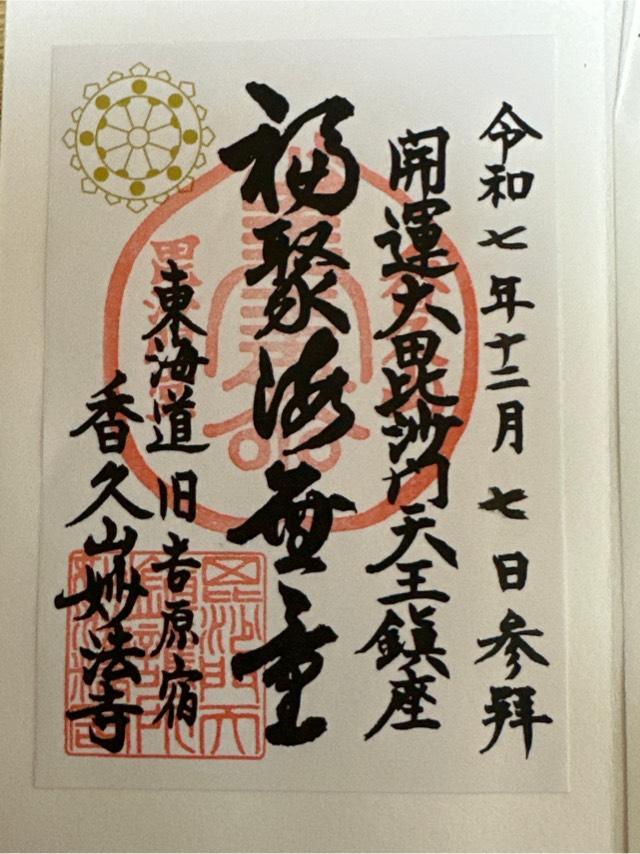 令和七年十二月七日参拝
開運大毘沙門天王鎮座
福聚海無量
東海道旧吉原宿
香久山妙法寺